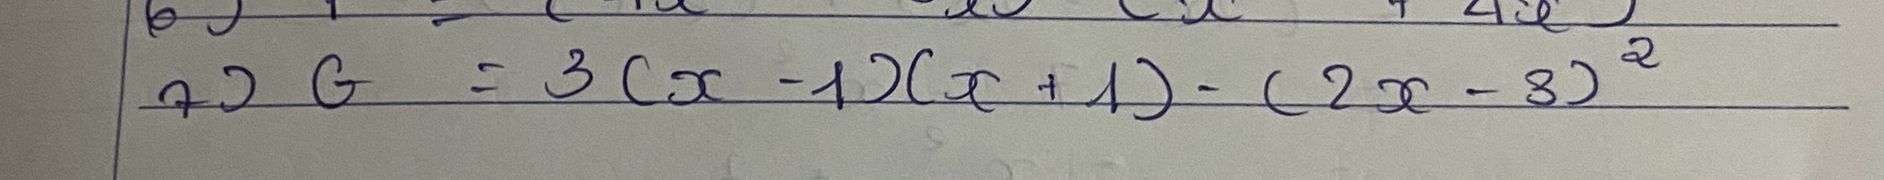 7) G = 3(x - 1)(x + 1) - (2x - 3)²